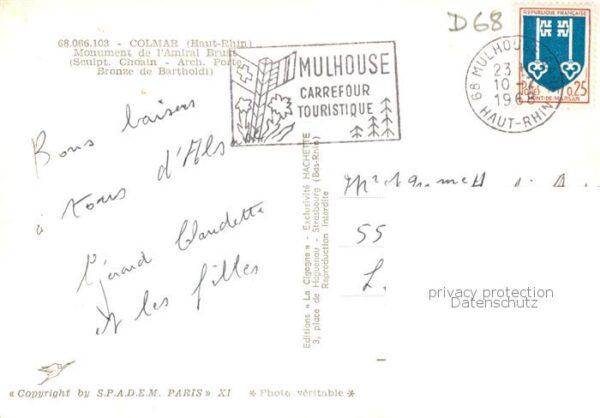 D68
68.066.103 - COLMAR (Haut-Rhin)
Monument de l'Amiral Bruat
(Sculpt. Choain - Arch. Porte
Bronze de Bartholdi)
MULHOUSE
CARREFOUR
TOURISTIQUE
68 MULHOU
23
10 -
196
HAUT-RHIN
REPUBLIQUE FRANÇAISE
0,25
MONT-DE-MARSAN
Bons baisers
à tous d'Als
Gérard Claudette
et les filles
Editions « La Cigogne » - Exclusivité HACHETTE
3, place de Haguenau - Strasbourg (Bas-Rhin)
Reproduction interdite
55
L.
privacy protection
Datenschutz
« Copyright by S.P.A.D.E.M. PARIS » XI * Photo véritable *